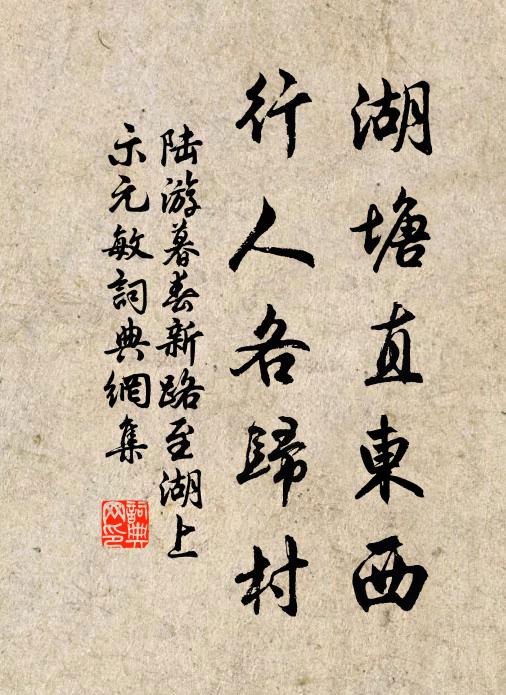 湖塘直東西
行人各歸村
陸游暮春新路至湖上
示元敏詞典網集
詞典網印